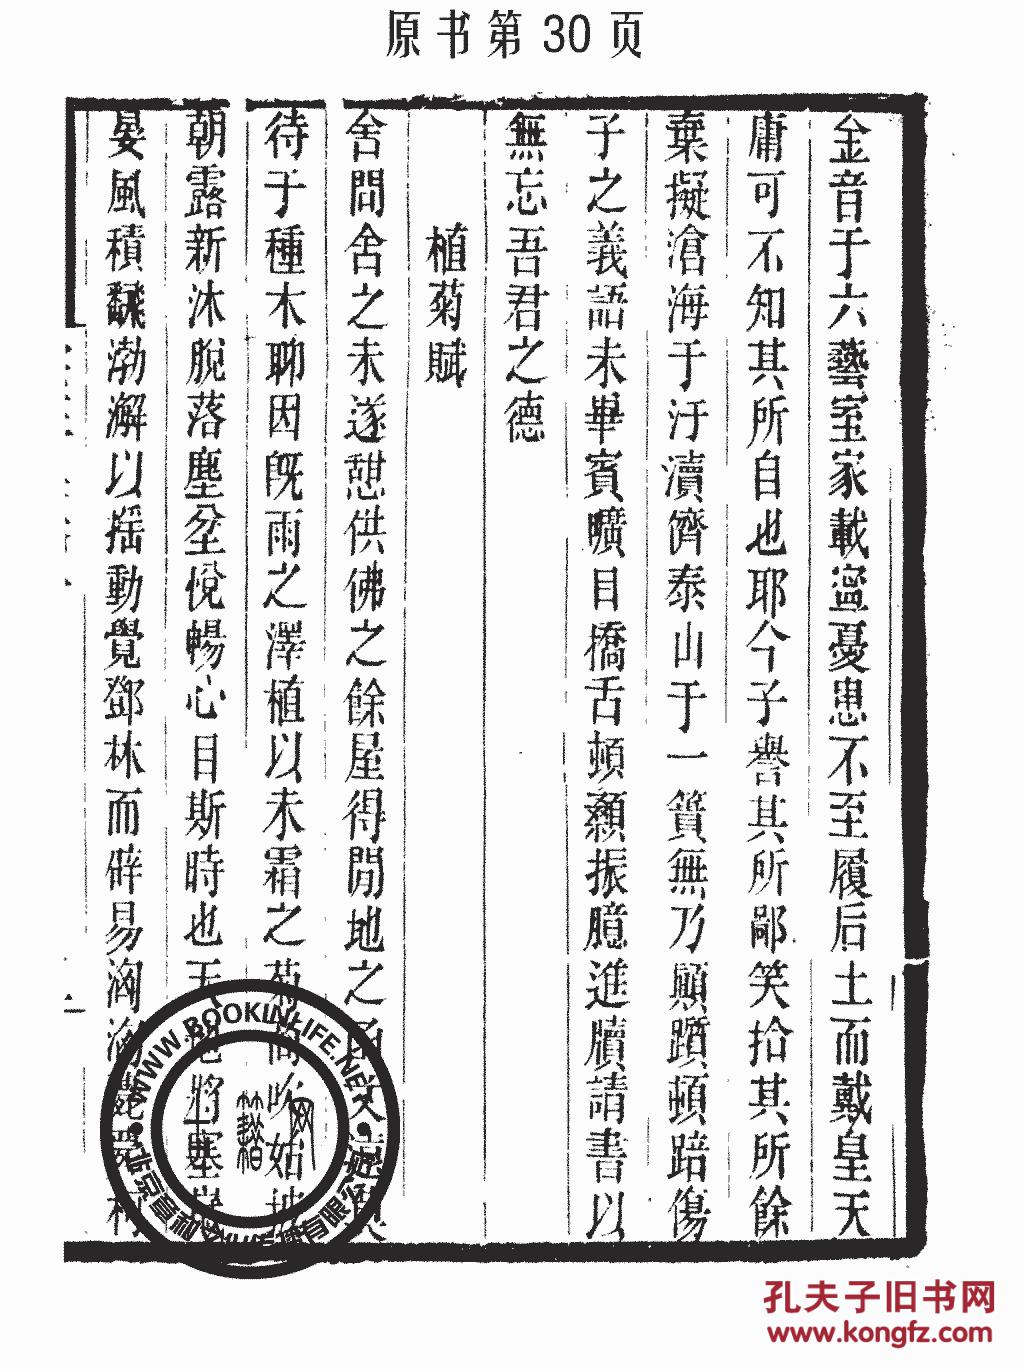 原书第30页
金音于六藝室家載寍憂患不至履后土而戴皇天
庸可不知其所自也耶今子譽其所鄙笑拾其所餘
棄擬滄海于汙瀆儕泰山于一簣無乃顚躓頓踣傷
子之義語未畢賓曠目橋舌頓顙振臆進牘請書以
無忘吾君之德
植菊賦
舍問舍之未遂憇供佛之餘屋得閒地之
待于種木聊因旣雨之澤植以未霜之菊
朝露新沐脫落塵坌悅暢心目斯時也天地將塞
晏風積飜渤澥以揺動覺鄧林而辟易洶
WWW.BOOKINLIFE.NET
孔夫子旧书网
www.kongfz.com